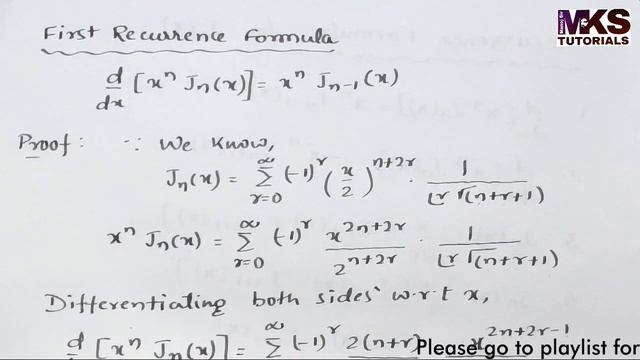 First Recurrence Formula
MKS
TUTORIALS
d/dx [xⁿ Jₙ(x)] = xⁿ Jₙ₋₁(x)
Proof: ∵ We Know,
Jₙ(x) = ∑_{r=0}^{∞} (-1)^r (x/2)^{n+2r} · 1/(⌊r √(n+r+1))
xⁿ Jₙ(x) = ∑_{r=0}^{∞} (-1)^r x^{2n+2r}/2^{n+2r} · 1/(⌊r √(n+r+1))
Differentiating both sides w.r.t x,
d [xⁿ Jₙ(x)] = ∑^{∞} (-1)^r 2(n+r) x^{2n+2r-1}
Please go to playlist for